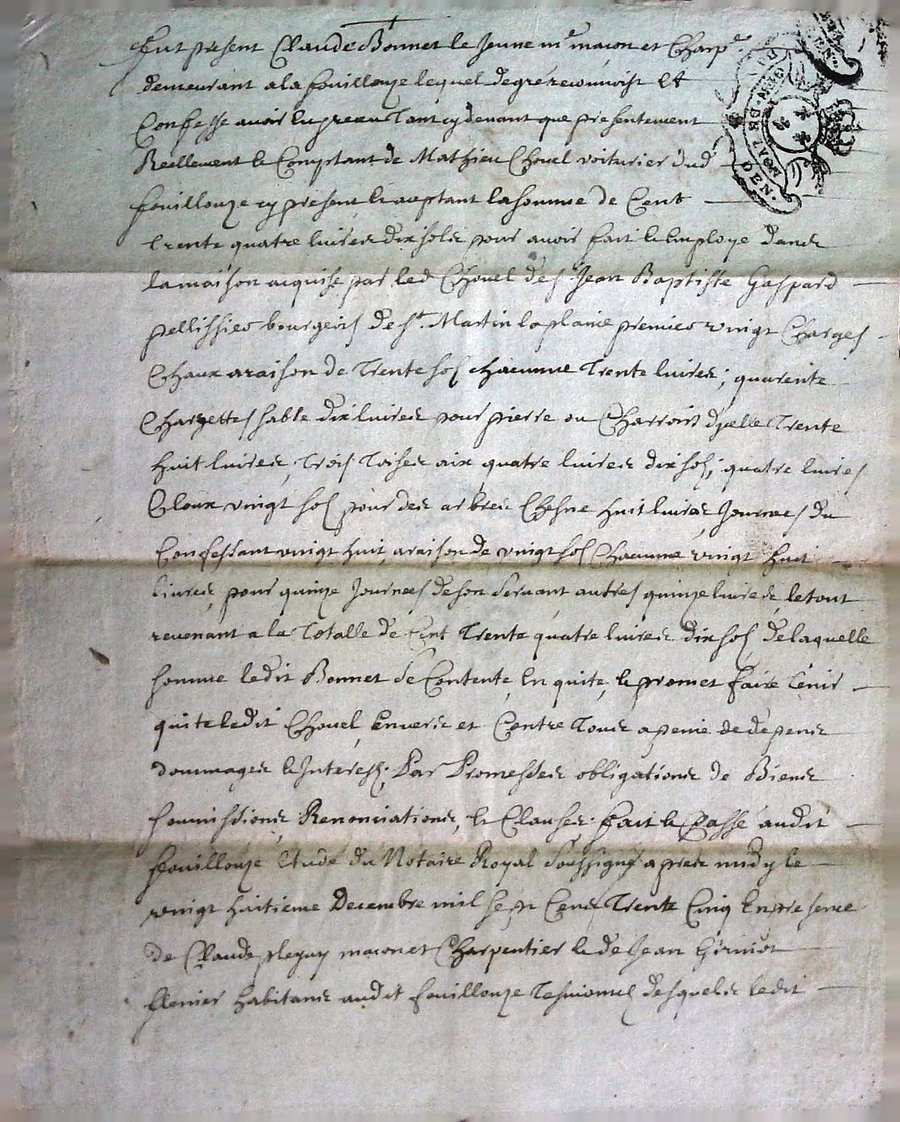 Fut présent Claude Bonnet le Jeune me macon et Charp.
demeurant a la fouillouze lequel de gré reconnoist Et
Confesse avoir heu receu Tant cy devant que présentement
Reellement le Comptant de Mathieu Chovel voiturier dud
fouillouze cy présent et aceptant la somme de Cent
trente quatre livres dix sols pour avoir fait et Employe dans
la maison acquise par led Chovel de s Jean Baptiste Gaspard
pellissier bourgeois de st. Martin la plaine premier vingt Charges
Chaux a raison de Trente sols chacune Trente livres, quarente
Charrettes sable dix livres pour pierre ou Charrois dycelle Trente
huit livres, Trois Toises aix quatre livres dix sols, quatre livres
Cloux vingt sols pour des arbres Chesne huit livres Journees du
Confessant vingt huit, a raison de vingt sols Chacune vingt huit
livres, pour quinze Journees de son servant autres quinze livres, le tout
revenant a la Totalle de Cent Trente quatre livres dix sols, de laquelle
somme ledit Bonnet se Contente, En quite, et promet faire Tenir
quite ledit Chovel, Envers et Contre Tous a peine de depens
dommages et Interests, Par Promesses obligations de Biens
soumissions, Renonciations, et Clauses. fait et Passé audit
fouillouze Etude du Notaire Royal Soussigné apres midy le
vingt huitieme Decembre mil sept Cens Trente Cinq En presence
de Claude macon et Charpentier et de Jean
habitans audit fouillouze Tesmoins desquels ledit
GEN.
DEN.